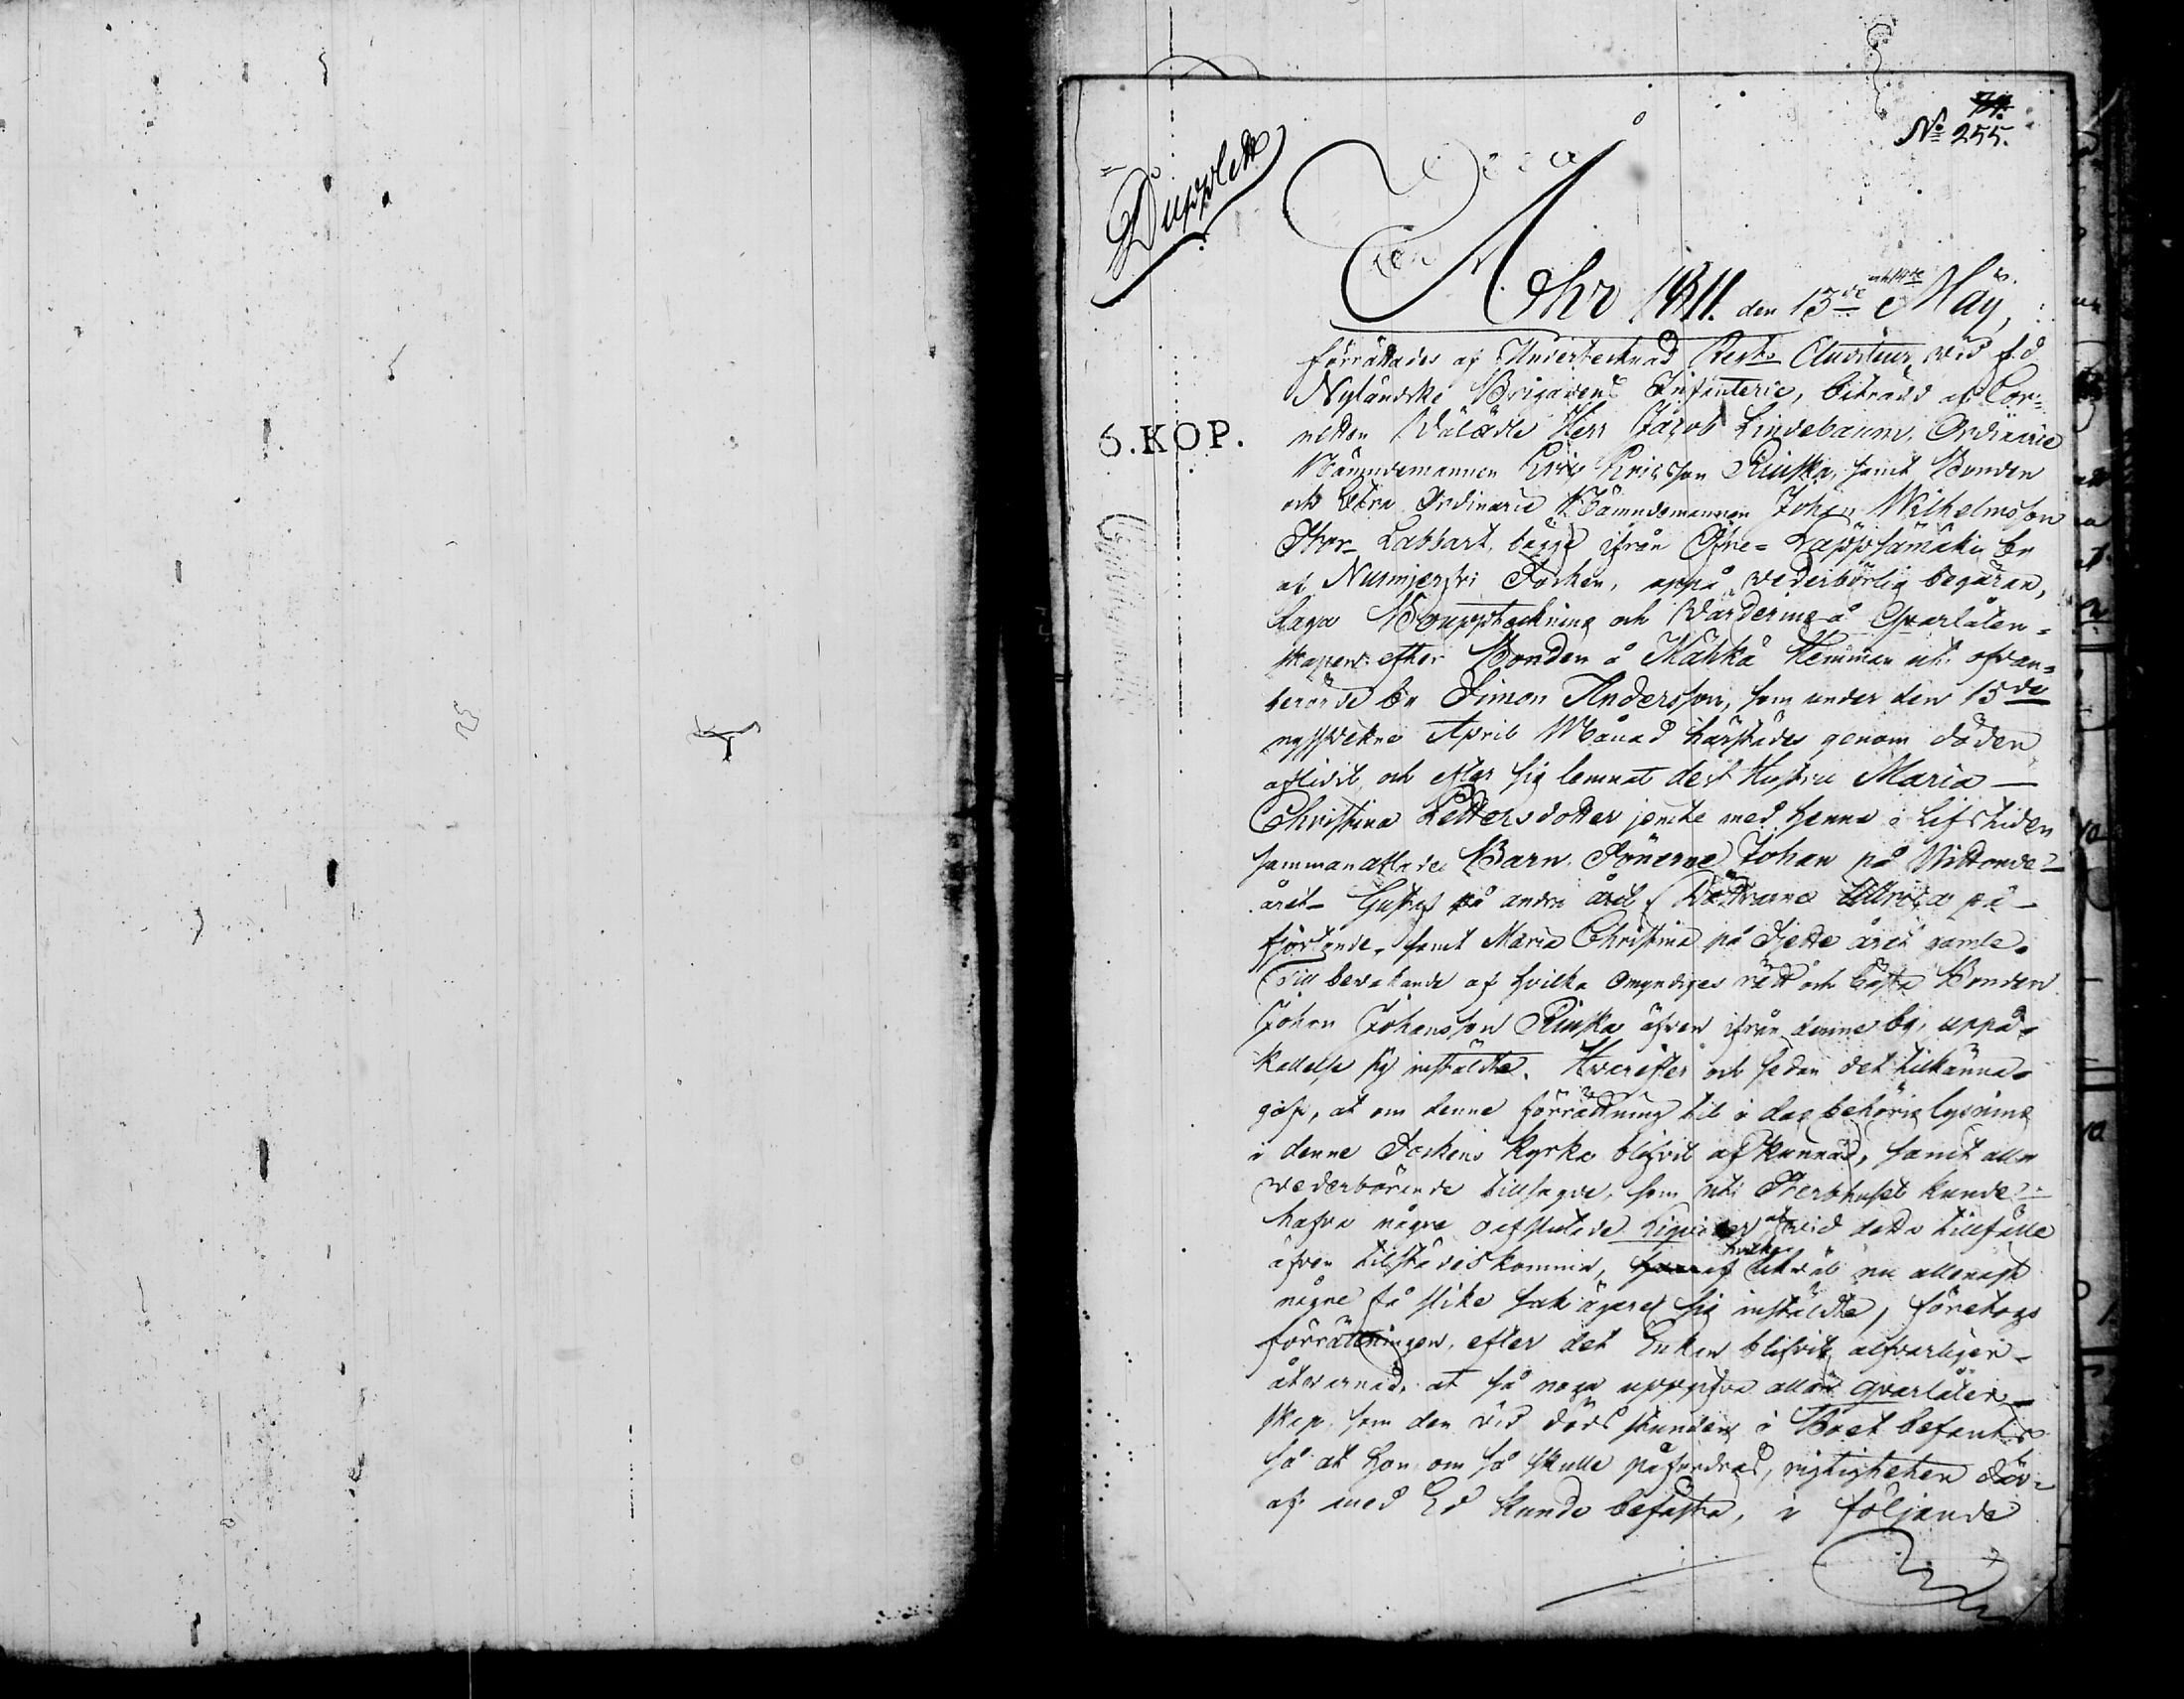 74.
No 255.
Dupplett
Åhr 1811. den 13de och 14de Maÿ,
förrättades af Undertecknad Regts Auditeur, vid f.d.
Nyländske Brigadens Infanterie, biträdd af Cor-
netten Välädle Herr Jacob Lindebaum, Ordinarie
6.KOP.
Nämndemannen Eric Ericsson Riuska, samt Bonden
och Extra Ordinarie Nämndemannen Johan Wilhelmsson
Stor-Labbart, bägge ifrån Öfre-Lappsämäki by
af Nurmijerfvi Socken, uppå vederbörlig begäran,
laga Bouppteckning och Värdering å Qvarlåten-
skapen efter Bonden å Mähkä Hemman uti ofvan-
berörde by Simon Andersson, som under den 15de
nysspvekne April Månad härstädes genom döden
aflidit, och efter sig lemnat dess Hustru Maria
Christina Pettersdotter jemte med henne i Lifstiden
sammanaflade Barn. Sönerne Johan på Nittonde
året Gustaf på andra året, Döttrarna Ullrica på
fjortonde, samt Maria Christina på Sjette året gamle.
Till bevakande af hvilka Omyndiges rätt och bästa Bonden
Johan Johansson Riuska äfven ifrån denne by, uppå
kallelse sig inställdte. Hvarefter och sedan det tillkänna-
gafs, at om denne förrättning til i dag behörig lysning
i denne Sockens Kyrka blifvit afkunnad, samt alla
vederbörande tillsagde, som uti Sterbhuset kunde
hafva några oafslutade Liqvider at vid detta tillfälle
äfven tillstädes komma, hvaraf likväl nu allenast
hvilka
någre få slike sak ägare sig inställdte, företogs
förrättningen, efter det Enkan blifvit alfvarligen
åtvarnad, at så noga uppgifva allan qvarlåten-
skap, som den vid döds stunden i Boet befants
så at hon om så skulle påfordras, rigtigheten där-
af med Ed kunde befästa, i följande